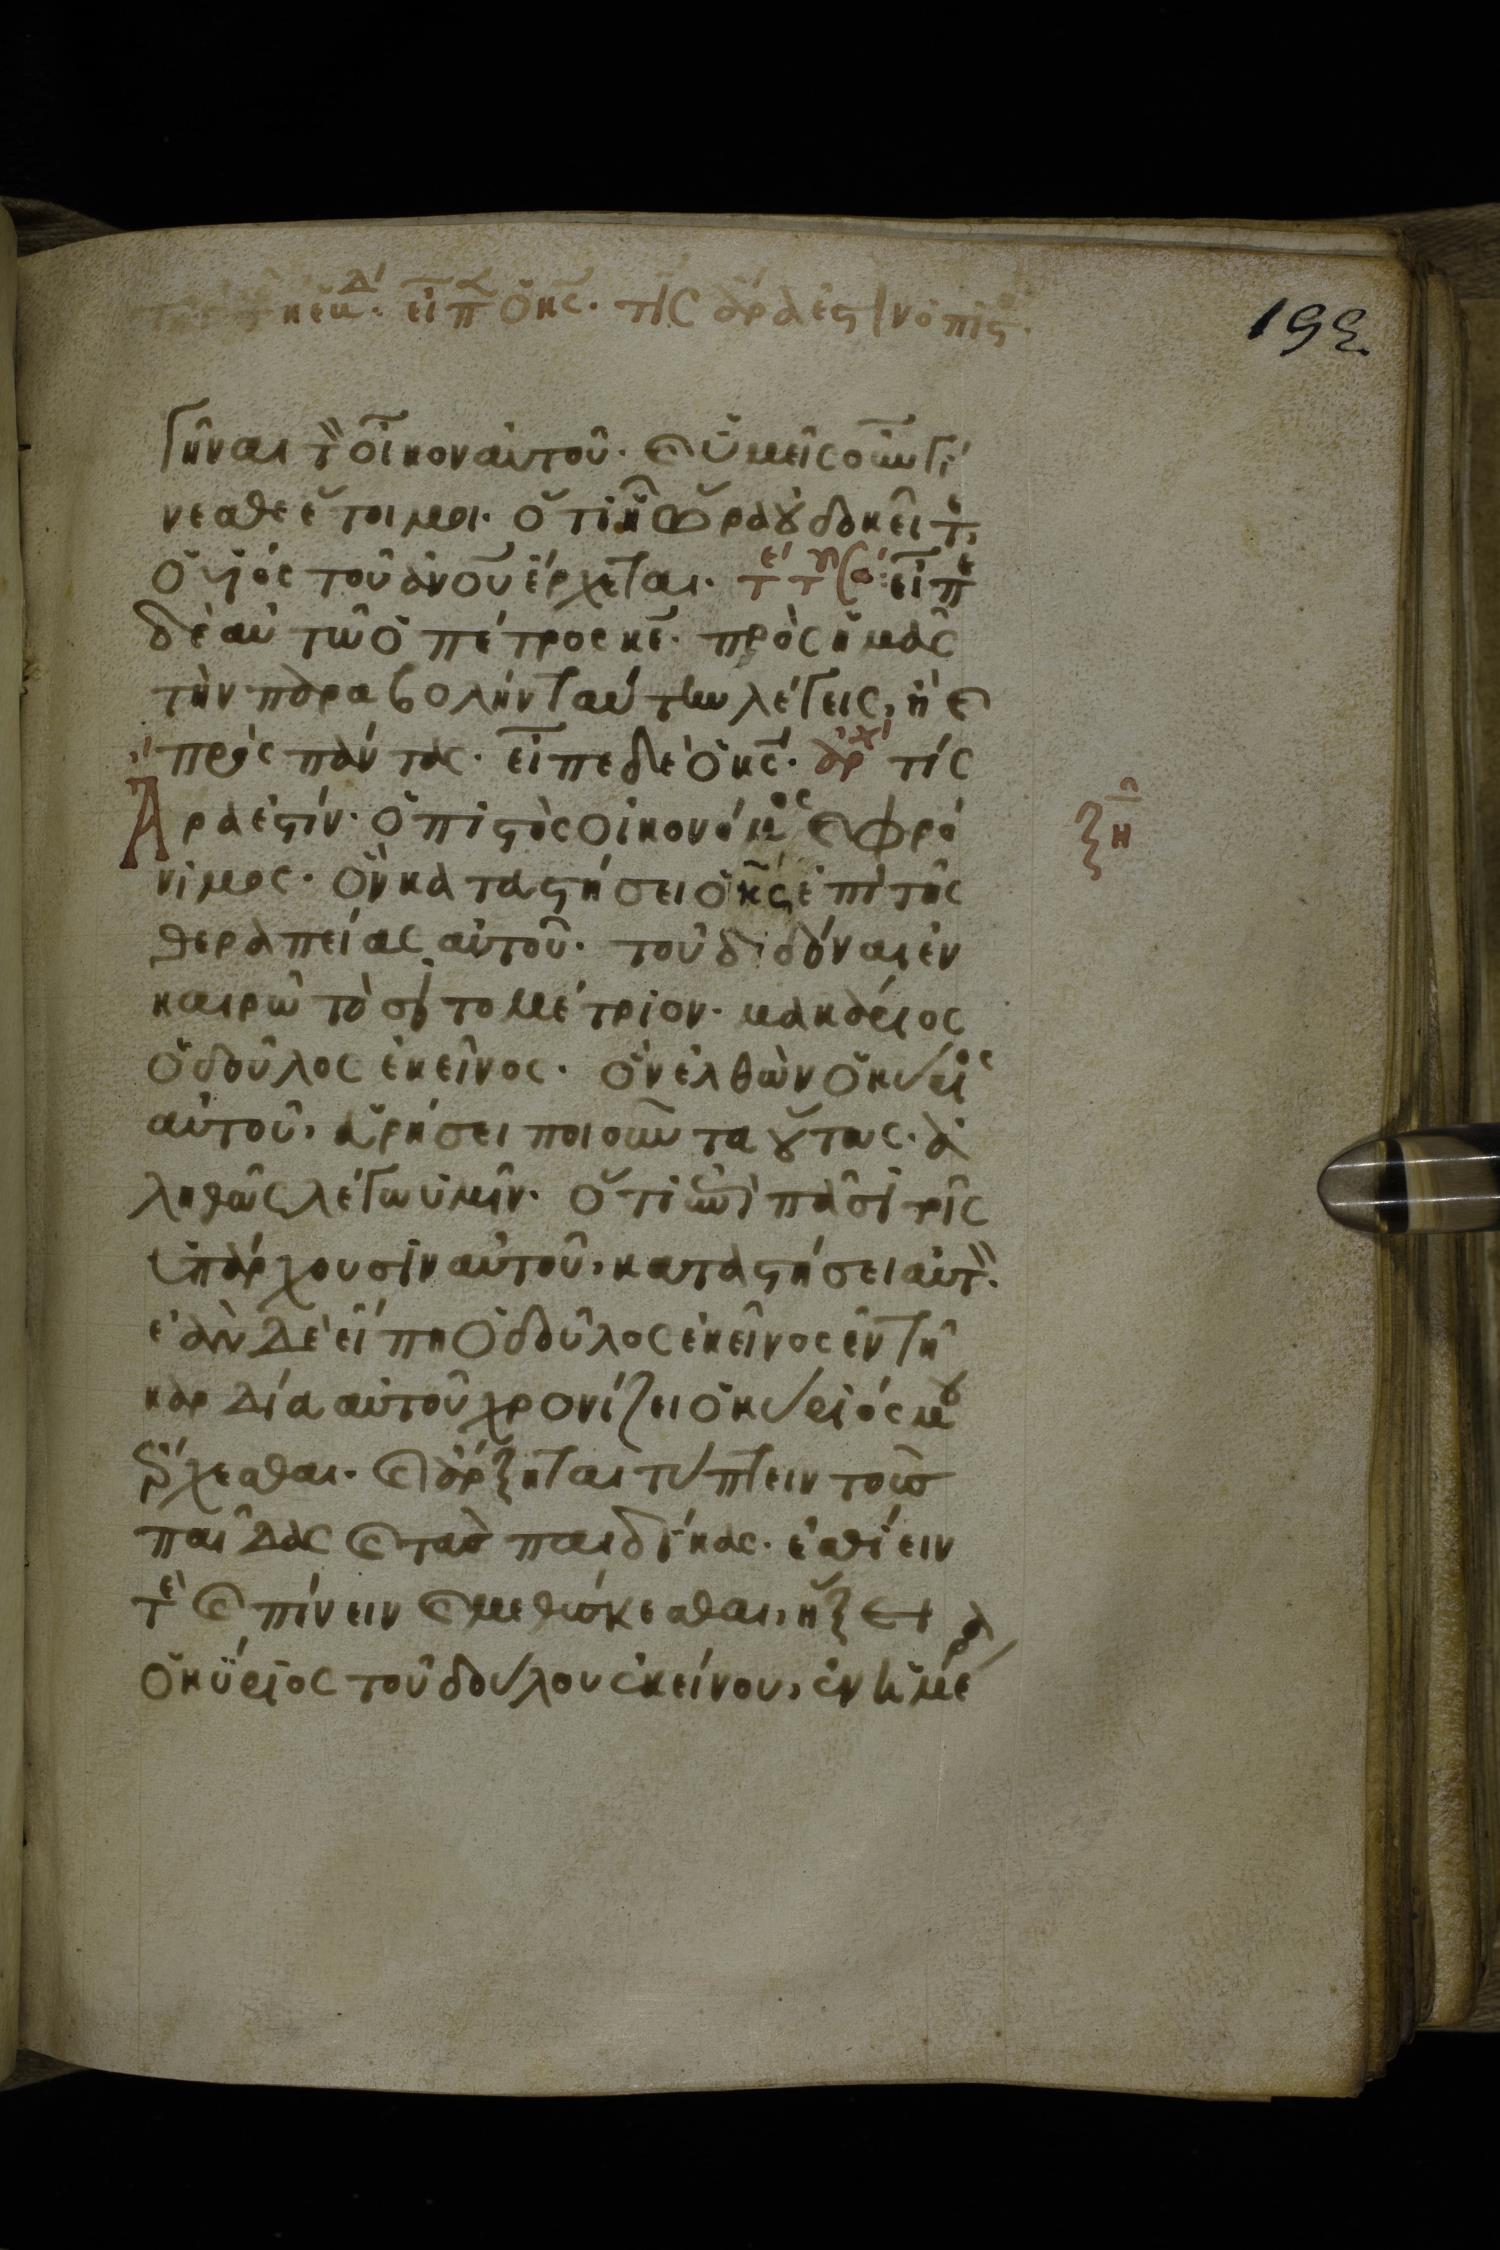 εἶπεν ὁ κ̅ς̅. τίς ἄρα ἐστὶν ὁ πιστ
199
γῆναι τὸν οἶκον αὐτοῦ. καὶ ὑμεῖς οὖν γί
νεσθε ἕτοιμοι. ὅτι ἧ ὥρα οὐ δοκεῖτε,
ὁ υἱὸς τοῦ ἀν̅ο̅υ̅ ἔρχεται. εἶπε
δὲ αὐτῶ ὁ πέτρος κ̅ε̅. πρὸς ἡμᾶς
τὴν παραβολὴν ταύτην λέγεις, ἢ καὶ
πρὸς πάντας. εἶπε δὲ ὁ κ̅ς̅. ἀρχ τίς
Ἄρα ἐστίν. ὁ πιστὸς οἰκονόμος καὶ φρό
νιμος. ὃν καταστήσει ὁ κ̅ς̅ ἐπὶ τῆς
θεραπείας αὐτοῦ. τοῦ διδόναι ἐν
καιρῶ τὸ σιτομέτριον. μακάριος
ὁ δοῦλος ἐκεῖνος. ὃν ἐλθὼν ὁ κύριος
αὐτοῦ, εὑρήσει ποιοῦντα οὕτως. ἀ
ληθῶς λέγω ὑμῖν. ὅτι ἐπὶ πᾶσι τοῖς
ὑπάρχουσιν αὐτοῦ, καταστήσει αὐτόν.
ἐὰν δὲ εἴπη ὁ δοῦλος ἐκεῖνος ἐν τῆ
καρδία αὐτοῦ χρονίζει ὁ κύριός μου
ἔρχεσθαι. καὶ ἄρξηται τύπτειν τοὺς
παῖδας καὶ τὰς παιδίσκας. ἐσθίειν
τὲ καὶ πίνειν καὶ μεθύσκεσθαι, ἥξει
ὁ κύριος τοῦ δούλου ἐκείνου, ἐν ἡμέρα